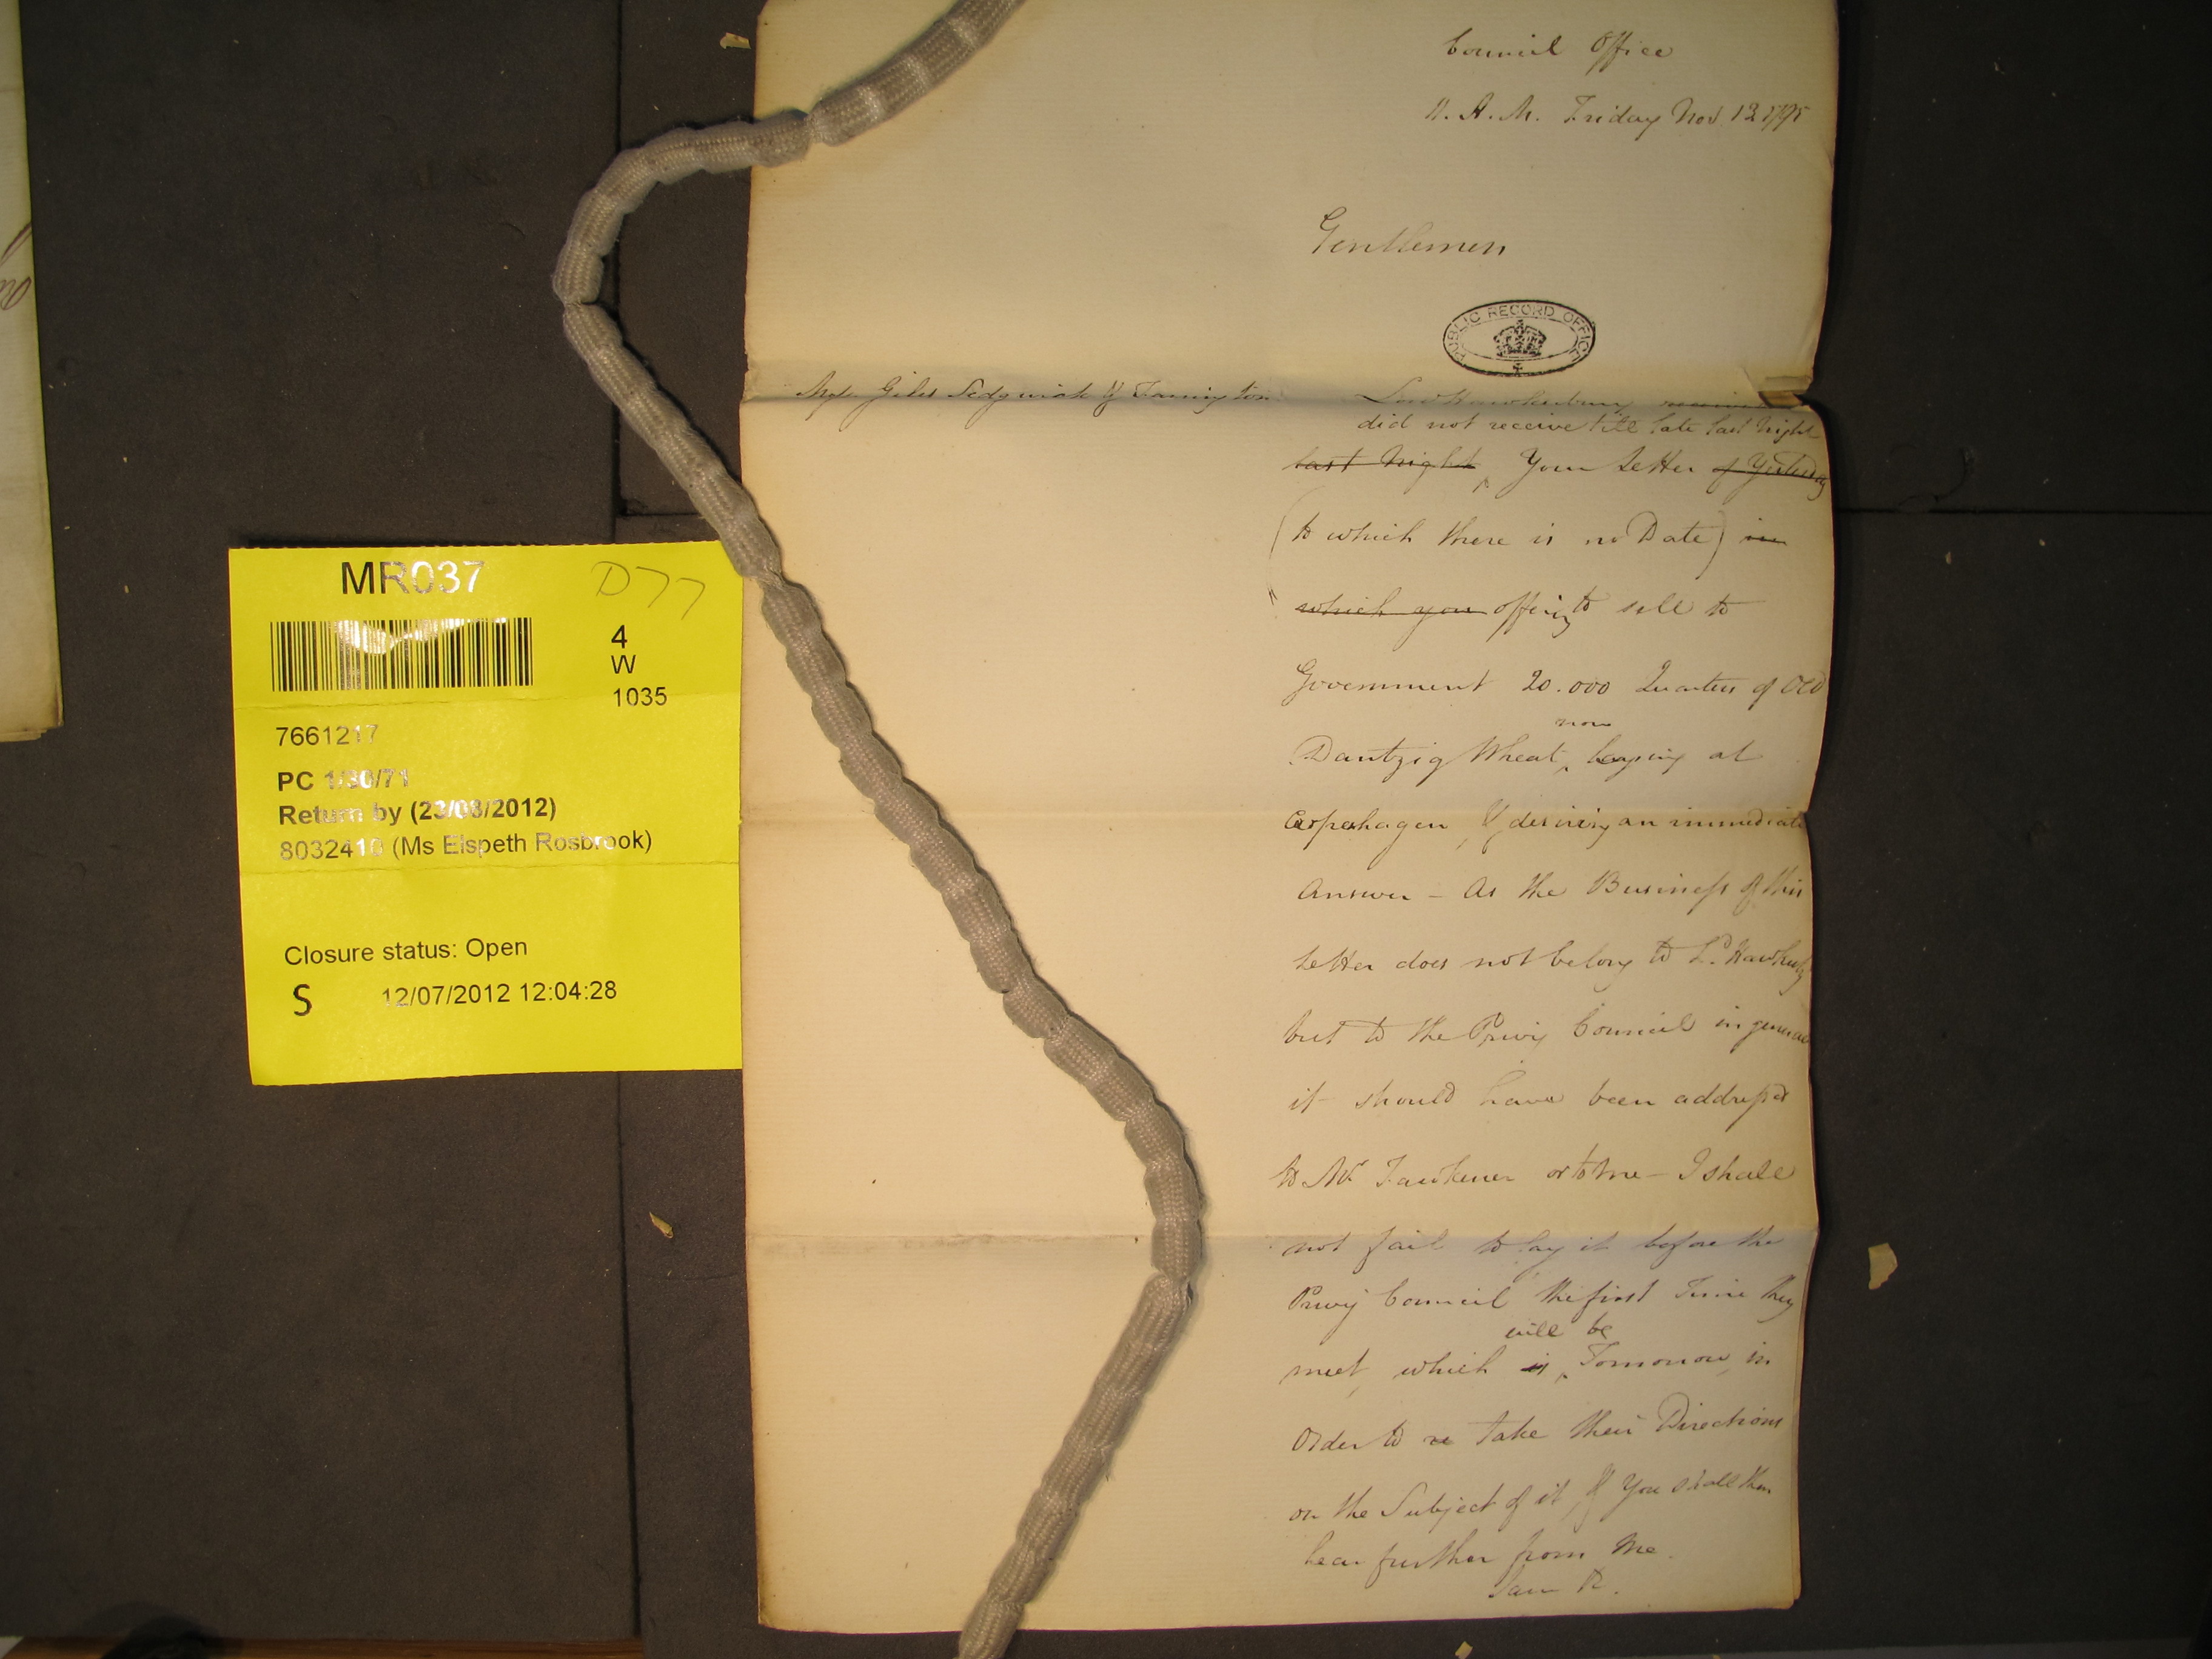 Council Office
11. A.M. Friday Nov. 13 1795
Gentlemen
PUBLIC RECORD OFFICE
Giles Sedgwick & Farrington
Lord Hawkesbury received
did not receive till late last Night
last Night, Your Letter of Yesterday
(to which there is no Date) in
which you offering to sell to
Government 20.000 Quarters of Old
now
Dantzig Wheat, laying at
Copenhagen, & desiring an immediate
Answer - As the Business of this
Letter does not belong to Ld. Hawkesby
but to the Privy Council in general
it should have been addressed
to Mr. Fawkener or to me - I shall
not fail to lay it before the
Privy Council the first Time they
will be
meet, which is, Tomorrow, in
Order to re take their Directions
on the Subject of it, & You shall then
hear further from Me.
I am &c.
MR037
D77
4
W
1035
7661217
PC 1/30/71
Return by (23/08/2012)
8032410 (Ms Elspeth Rosbrook)
Closure status: Open
S 12/07/2012 12:04:28